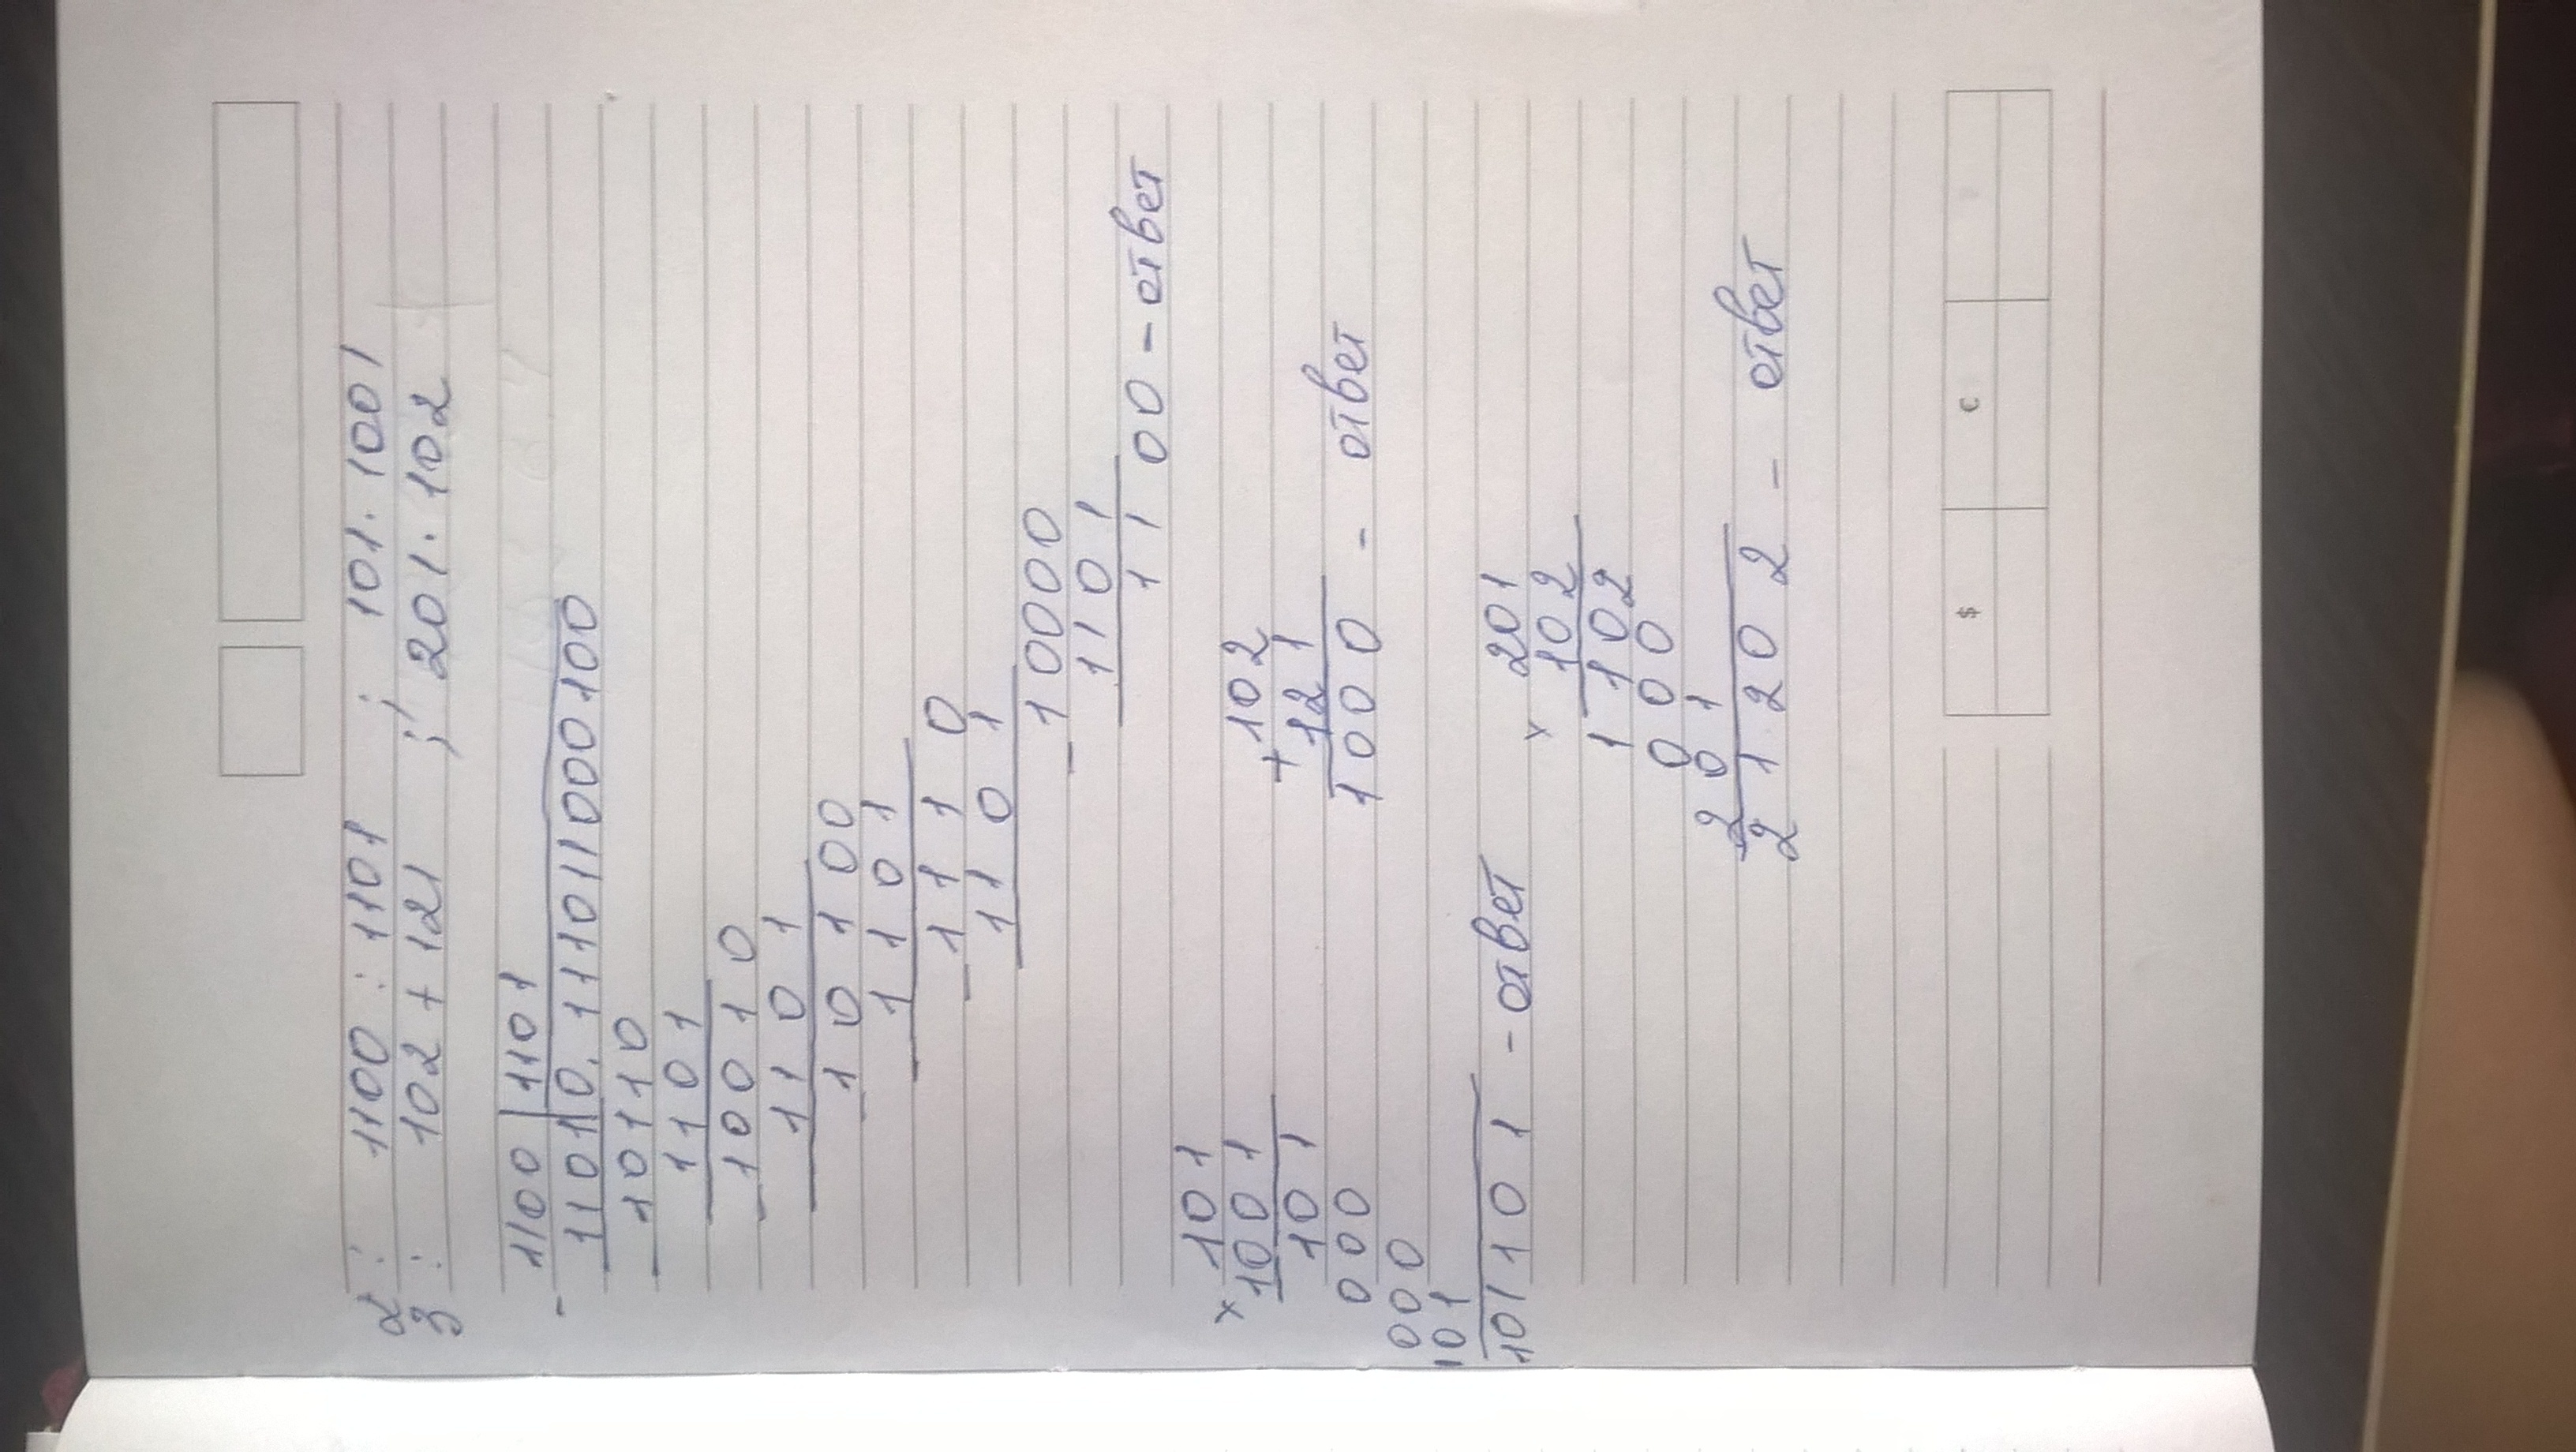 2: 1100 : 1101 ; 101 · 1001
3: 102 + 121 ; 201 · 102
- 1100 | 1101
1101 | 0.1110110001 00
- 10110
1101
- 10010
1101
- 10100
1101
- 1110
1101
- 10000
1101
1100 - ответ
× 101
1001
101
000
000
101
101101 - ответ
+ 102
121
1000 - ответ
× 201
102
1102
000
201
21202 - ответ
$ €